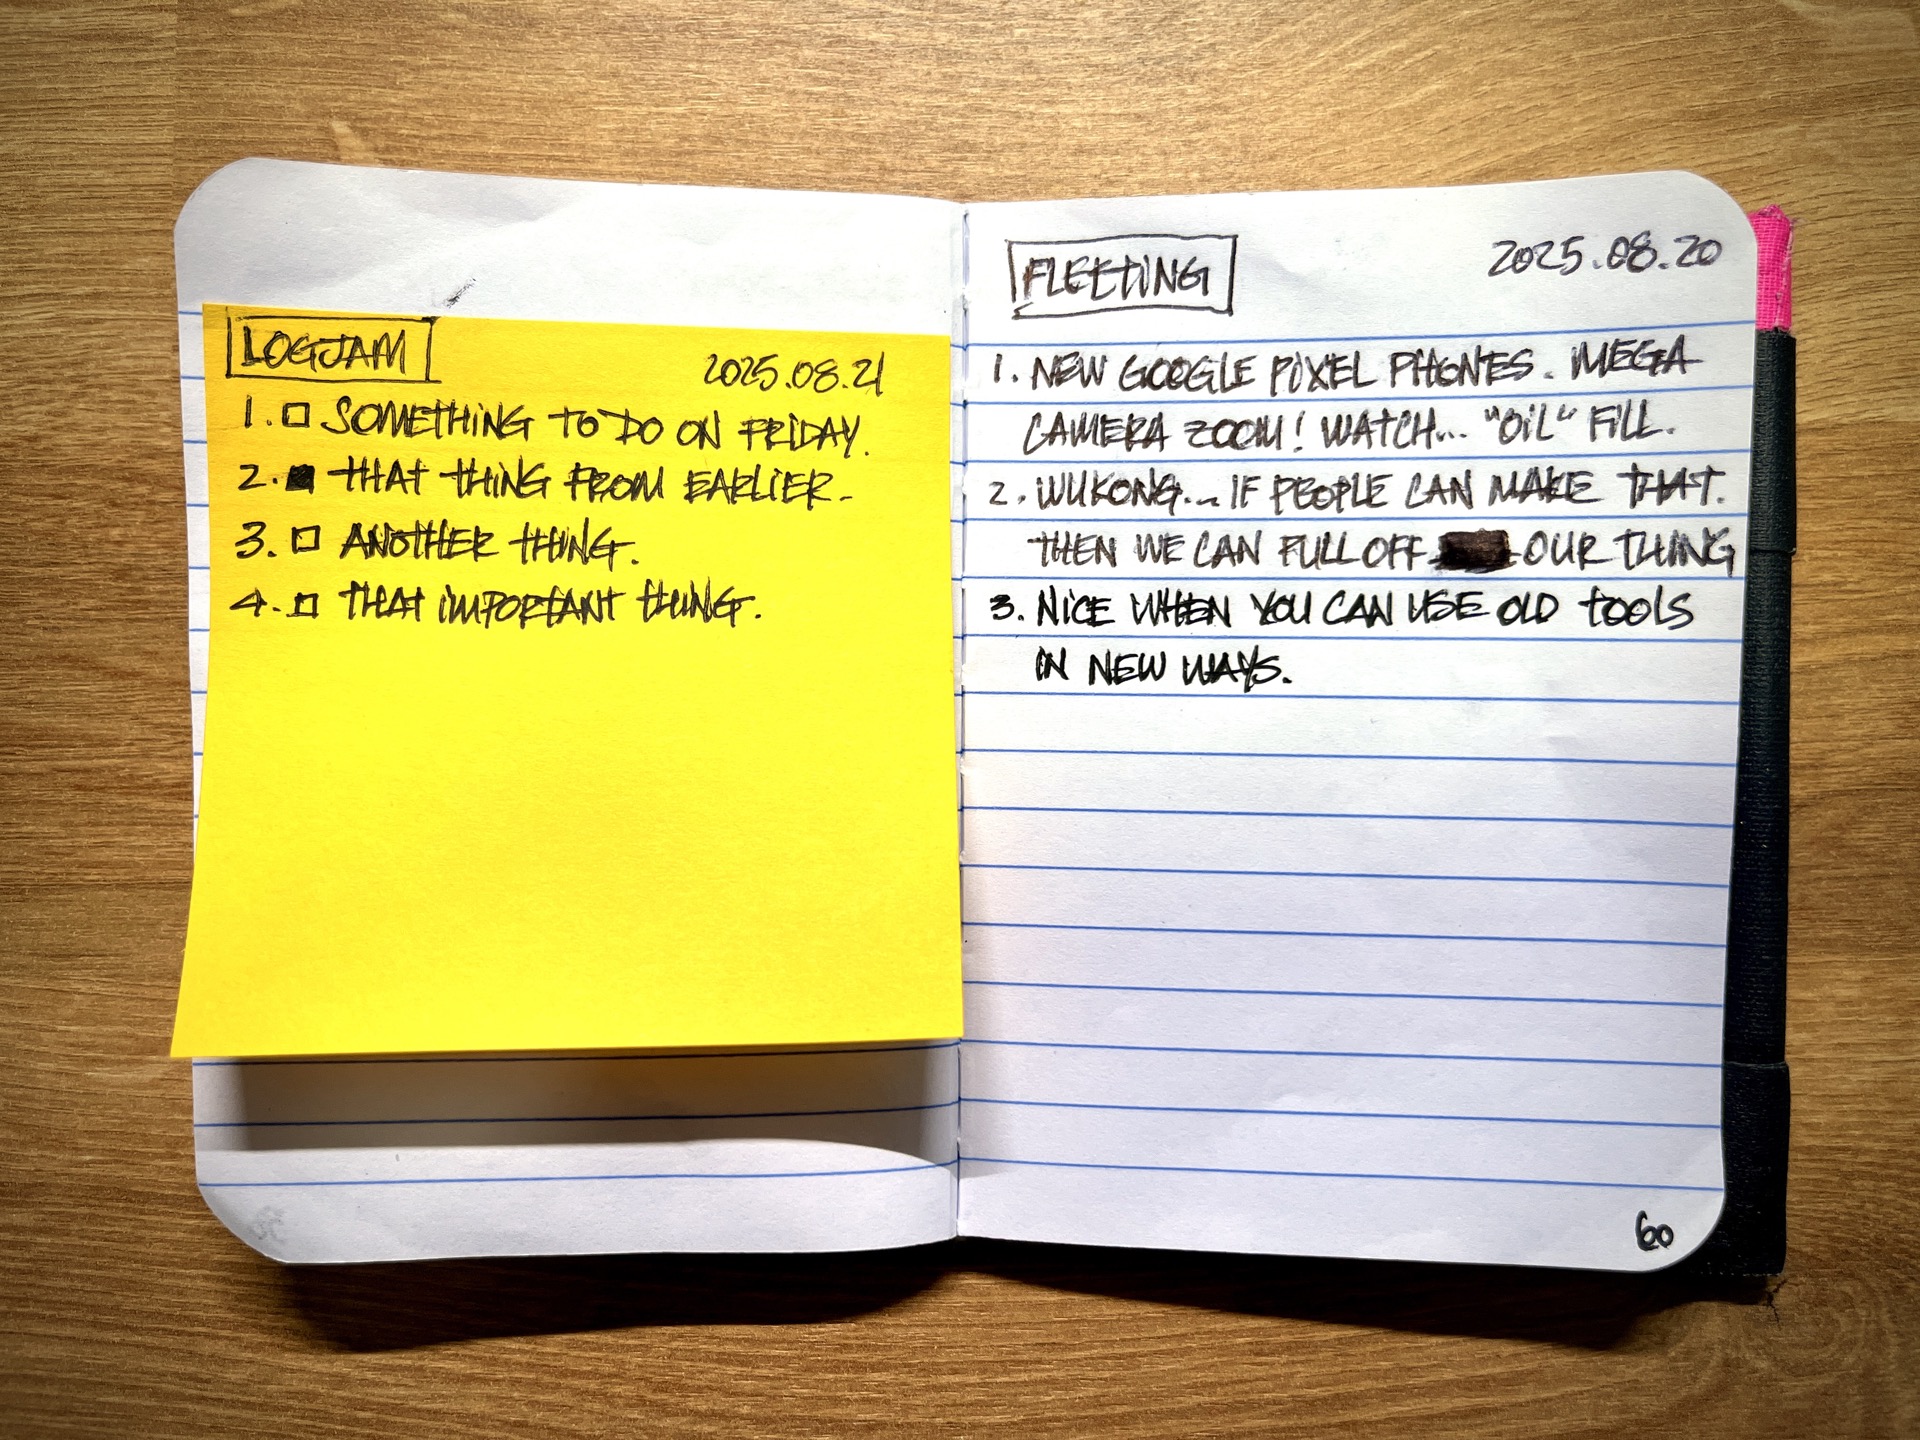 LOGJAM
2025.08.21
1. □ SOMETHING TO DO ON FRIDAY.
2. ■ THAT THING FROM EARLIER.
3. □ ANOTHER THING.
4. □ THAT IMPORTANT THING.
FLEETING
2025.08.20
1. NEW GOOGLE PIXEL PHONES. MEGA
CAMERA ZOOM! WATCH... "OIL" FILL.
2. WUKONG... IF PEOPLE CAN MAKE THAT.
THEN WE CAN PULL OFF OUR THING
3. NICE WHEN YOU CAN USE OLD TOOLS
IN NEW WAYS.
60